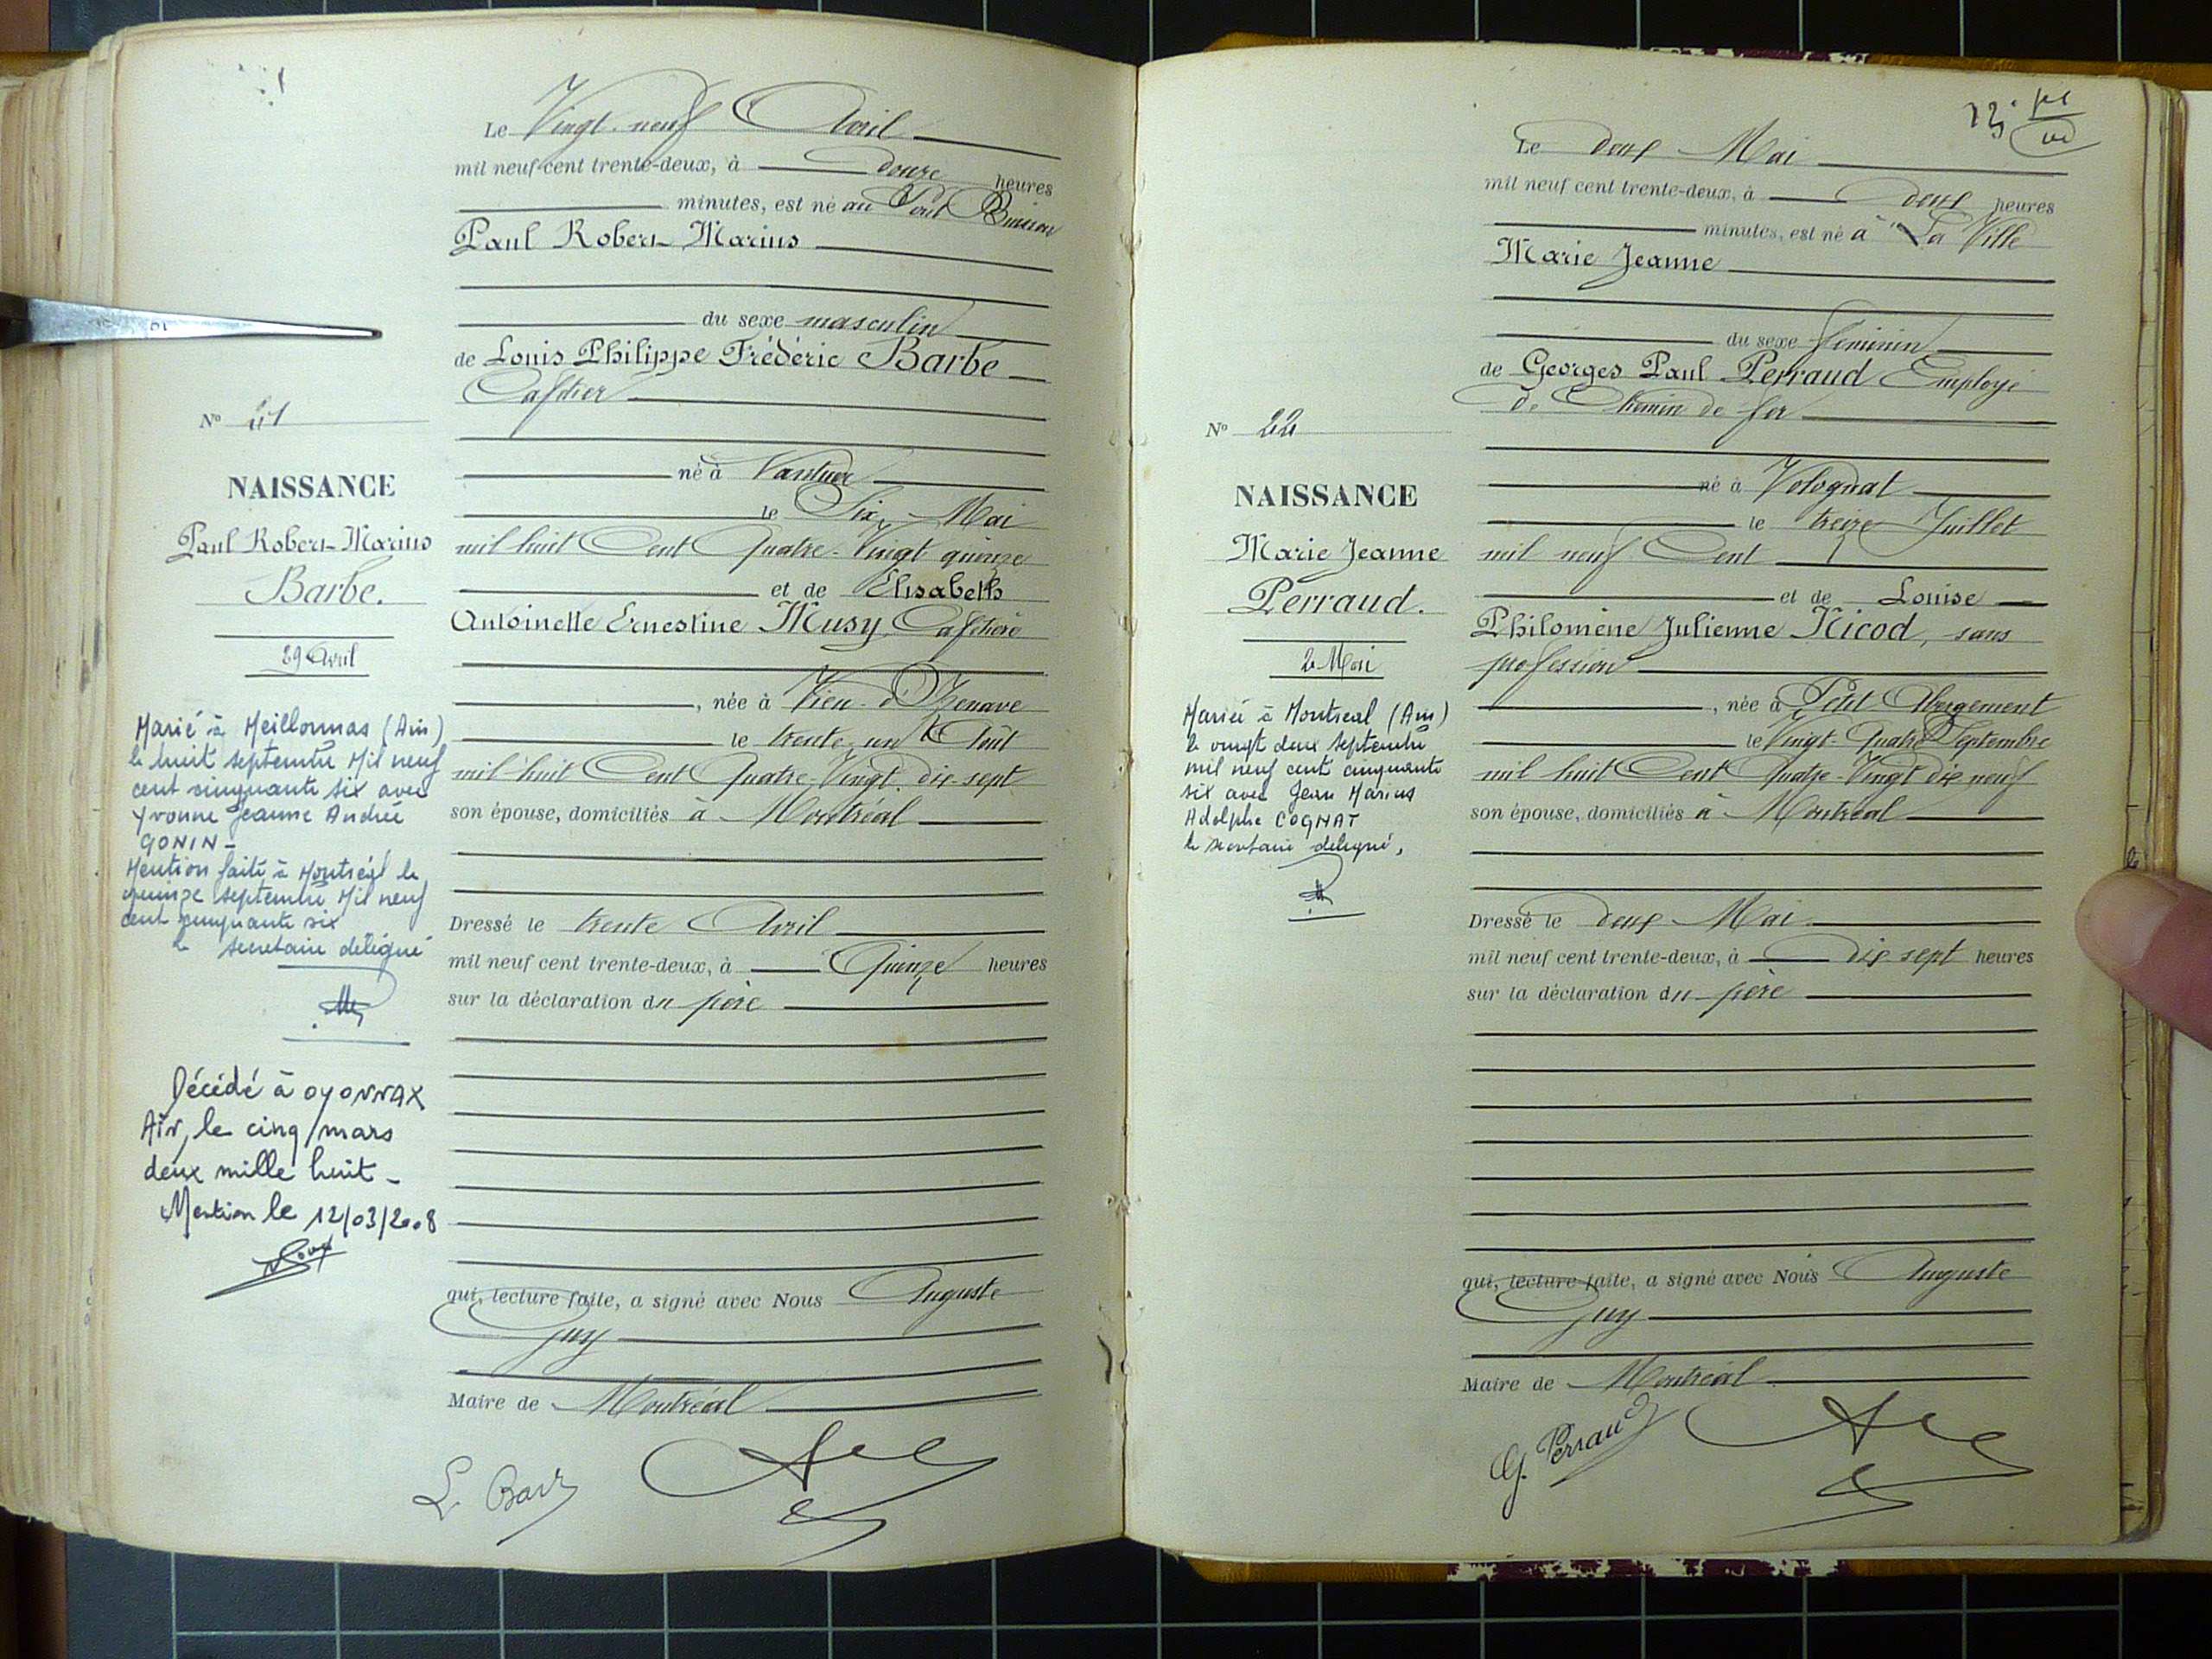 Le Vingt-neuf Avril
mil neuf cent trente-deux, à douze heures
minutes, est né au Pont
Paul Robert Marius
du sexe masculin
de Louis Philippe Frédéric Barbe
Cafetier
né à Nantua
le Six Mai
mil huit Cent Quatre-Vingt quinze
et de Elisabeth
Antoinette Ernestine Musy, Cafetière
, née à Vieu-d'Izenave
le trente-un Août
mil huit Cent Quatre-Vingt dix-sept
son épouse, domiciliés à Montréal
Dressé le trente Avril
mil neuf cent trente-deux, à Quinze heures
sur la déclaration du père
qui, lecture faite, a signé avec Nous Auguste
Guy
Maire de Montréal
L. Barbe
N° 21
NAISSANCE
Paul Robert Marius
Barbe.
29 Avril
Marié à Meillonnas (Ain)
le huit septembre Mil neuf
cent cinquante six avec
Yvonne Jeanne Andrée
GONIN -
Mention faite à Montréal le
quinze septembre Mil neuf
cent cinquante six
le secrétaire délégué
Décédé à OYONNAX
Ain, le cinq mars
deux mille huit -
Mention le 12/03/2008
Le deux Mai
mil neuf cent trente-deux, à deux heures
minutes, est né à "La Ville
Marie Jeanne
du sexe féminin
de Georges Paul Perraud Employé
de Chemin de fer
né à Volognat
le treize Juillet
mil neuf Cent
et de Louise
Philomène Julienne Nicod, sans
profession
, née à Petit Abergement
le Vingt-Quatre Septembre
mil huit Cent Quatre-Vingt dix neuf
son épouse, domiciliés à Montréal
Dressé le deux Mai
mil neuf cent trente-deux, à dix sept heures
sur la déclaration du père
qui, lecture faite, a signé avec Nous Auguste
Guy
Maire de Montréal
G. Perraud
N° 22
NAISSANCE
Marie Jeanne
Perraud.
2 Mai
Mariée à Montreal (Ain)
le vingt deux septembre
mil neuf cent cinquante
six avec Jean Marius
Adolphe COGNAT
le secrétaire délégué,